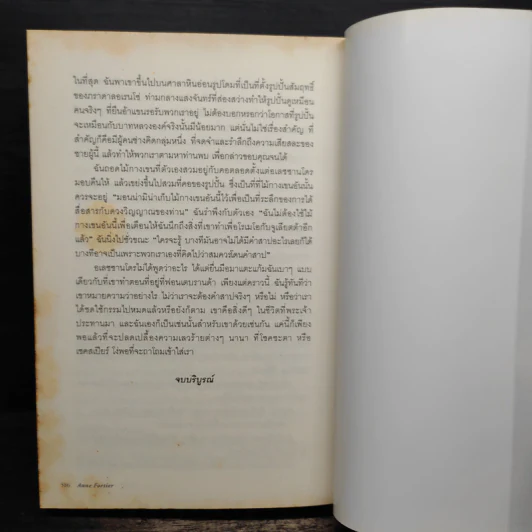 ในที่สุด ฉันพาเขาขึ้นไปบนศาลาหินอ่อนรูปโดมที่เป็นที่ตั้งรูปปั้นสัมฤทธิ์
ของภราดาลอเรนโซ่ ท่ามกลางแสงจันทร์ที่ส่องสว่างทำให้รูปปั้นดูเหมือน
คนจริงๆ ที่ยืนอ้าแขนรอรับพวกเราอยู่ ไม่ต้องบอกหรอกว่าโอกาสที่รูปปั้น
จะเหมือนกับบาทหลวงองค์จริงนั้นมีน้อยมาก แต่นั่นไม่ใช่เรื่องสำคัญ ที่
สำคัญก็คือมีผู้คนช่างคิดกลุ่มหนึ่ง ที่จดจำและรำลึกถึงความเสียสละของ
ชายผู้นี้ แล้วทำให้พวกเราตามหาท่านพบ เพื่อกล่าวขอบคุณจนได้
ฉันถอดไม้กางเขนที่ตัวเองสวมอยู่กับคอตลอดตั้งแต่อเลซซานโดร
มอบคืนให้ แล้วเขย่งขึ้นไปสวมที่คอของรูปปั้น ซึ่งเป็นที่ที่ไม้กางเขนอันนั้น
ควรจะอยู่ “มอนน่ามีน่าเก็บไม้กางเขนอันนี้ไว้เพื่อเป็นที่ระลึกของการได้
สื่อสารกับดวงวิญญาณของท่าน” ฉันรำพึงกับตัวเอง “ฉันไม่ต้องใช้ไม้
กางเขนอันนี้เพื่อเตือนให้ฉันนึกถึงสิ่งที่เขาทำเพื่อโรเมโอกับจูเลียตต้าอีก
แล้ว” ฉันนิ่งไปชั่วขณะ “ใครจะรู้ บางทีมันอาจไม่ได้มีคำสาปอะไรเลยก็ได้
บางทีอาจเป็นเพราะพวกเราเองที่คิดไปว่าสมควรโดนคำสาป”
อเลซซานโดรไม่ได้พูดว่าอะไร ได้แต่ยื่นมือมาแตะแก้มฉันเบาๆ แบบ
เดียวกับที่เขาทำตอนที่อยู่ที่ฟอนเตบรานด้า เพียงแต่คราวนี้ ฉันรู้ทันทีว่า
เขาหมายความว่าอย่างไร ไม่ว่าเราจะต้องคำสาปจริงๆ หรือไม่ หรือว่าเรา
ได้ชดใช้กรรมไปหมดแล้วหรือยังก็ตาม เขาคือสิ่งดีๆ ในชีวิตที่พระเจ้า
ประทานมา และฉันเองก็เป็นเช่นนั้นสำหรับเขาด้วยเช่นกัน แค่นี้ก็เพียง
พอแล้วที่จะปลดเปลื้องความเลวร้ายต่างๆ นานา ที่โชคชะตา หรือ
เชคสเปียร์ โง่พอที่จะถาโถมเข้าใส่เรา
จบบริบูรณ์
Anne Fortier